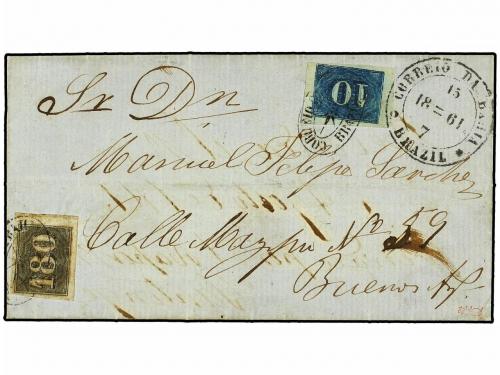 10
CORREIO DA BAHIA
15
18=61
7
BRAZIL
Sr Dn
Manuel Felipe Sanchez
180
Calle Maypu No 59
Buenos Ays